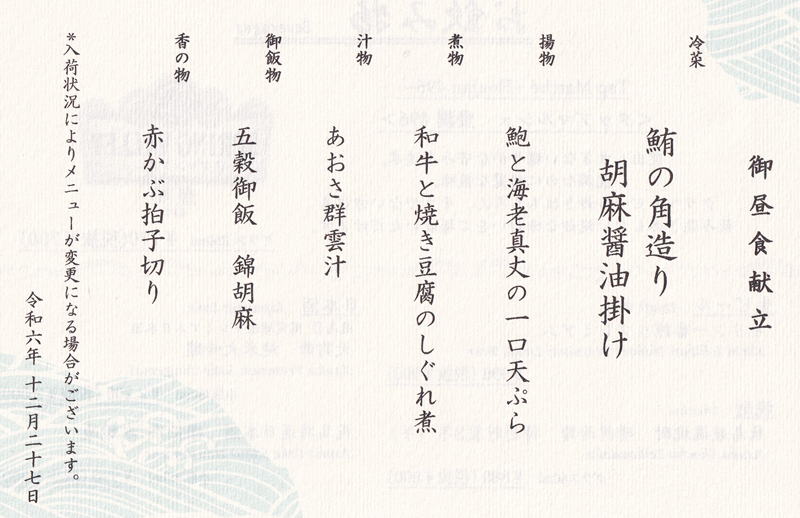 御昼食献立
冷菜
鮪の角造り
胡麻醤油掛け
揚物
鮑と海老真丈の一口天ぷら
煮物
和牛と焼き豆腐のしぐれ煮
汁物
あおさ群雲汁
御飯物
五穀御飯 錦胡麻
香の物
赤かぶ拍子切り
*入荷状況によりメニューが変更になる場合がございます。
令和六年 十二月二十七日